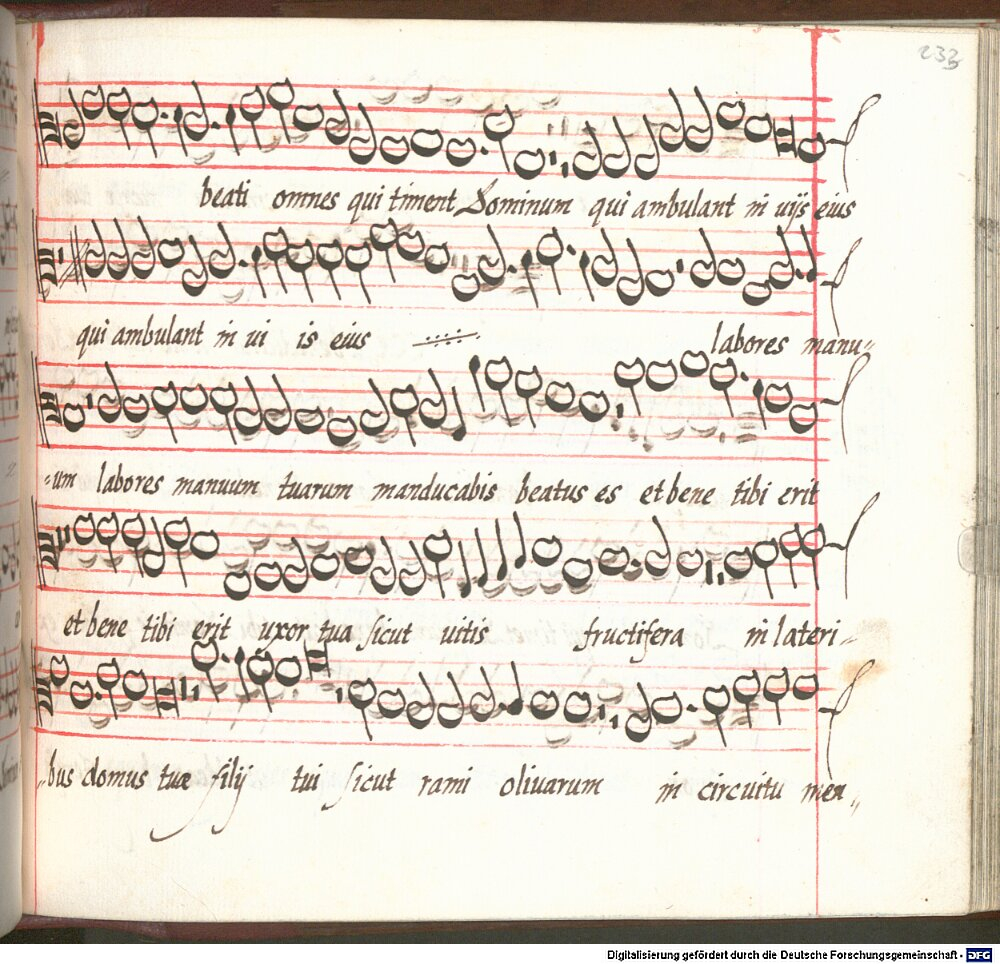 233
beati omnes qui timent Dominum qui ambulant in uijs eius
qui ambulant in ui is eius labores manu-
-um labores manuum tuarum manducabis beatus es et bene tibi erit
et bene tibi erit uxor tua sicut uitis fructifera in lateri-
-bus domus tuæ filij tui sicut rami oliuarum in circuitu men-
Digitalisierung gefördert durch die Deutsche Forschungsgemeinschaft - DFG